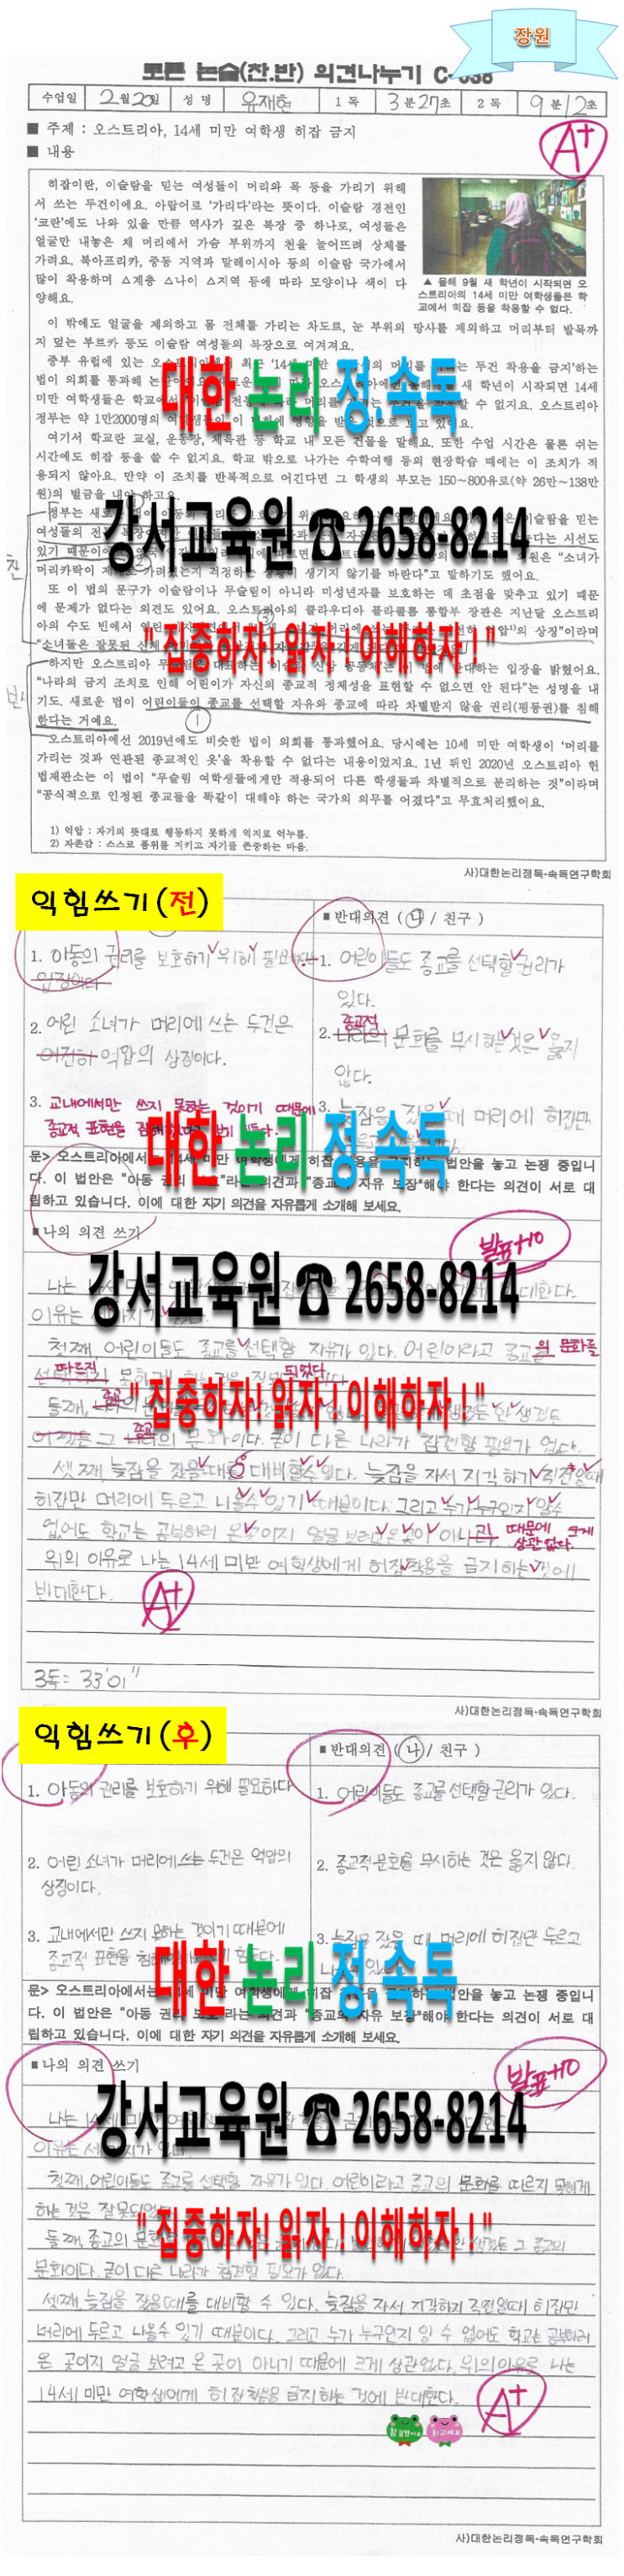 장원
토론 논술(찬.반) 의견나누기 C-038
수업일 2월20일 성 명 유재현 1 독 3분27초 2 독 9분12초
A+
■ 주제 : 오스트리아, 14세 미만 여학생 히잡 금지
■ 내용
히잡이란, 이슬람을 믿는 여성들이 머리와 목 등을 가리기 위해
서 쓰는 두건이에요. 아랍어로 '가리다'라는 뜻이다. 이슬람 경전인
'코란'에도 나와 있을 만큼 역사가 깊은 복장 중 하나로, 여성들은
얼굴만 내놓은 채 머리에서 가슴 부위까지 천을 늘어뜨려 상체를
가려요. 북아프리카, 중동 지역과 말레이시아 등의 이슬람 국가에서
많이 착용하며 △계층 △나이 △지역 등에 따라 모양이나 색이 다
양해요.
▲ 올해 9월 새 학년이 시작되면 오
스트리아의 14세 미만 여학생들은 학
교에서 히잡 등을 착용할 수 없다.
이 밖에도 얼굴을 제외하고 몸 전체를 가리는 차도르, 눈 부위의 망사를 제외하고 머리부터 발목까
지 덮는 부르카 등도 이슬람 여성들의 복장으로 여겨져요.
중부 유럽에 있는 머리를 두건 착용을 금지'하는
법이 의회를 통과해 새 학년이 시작되면 14세
미만 여학생들은 학교에서 수 없지요. 오스트리아
정부는 약 1만2000명의 보고 있어요.
대한 논리 정.속독
여기서 학교란 교실, 운동장, 체육관 등 학교 내 모든 건물을 말해요. 또한 수업 시간은 물론 쉬는
시간에도 히잡 등을 쓸 수 없지요. 학교 밖으로 나가는 수학여행 등의 현장학습 때에는 이 조치가 적
용되지 않아요. 만약 이 조치를 반복적으로 어긴다면 그 학생의 부모는 150~800유로(약 26만~138만
원)의 벌금을 내야 하고요.
강서교육원 ☎ 2658-8214
찬
정부는 새로운 이슬람을 믿는
여성들의 전통 시선도
있기 때문이에요. 의원은 "소녀가
머리카락이 가려졌는지 걱정하는 상황이 생기지 않기를 바란다"고 말하기도 했어요.
또 이 법의 문구가 이슬람이나 무슬림이 아니라 미성년자를 보호하는 데 초점을 맞추고 있기 때문
에 문제가 없다는 의견도 있어요. 오스트리아의 클라우디아 플라콜름 통합부 장관은 지난달 오스트리
아의 수도 빈에서 열린 상징"이라며
"소녀들은 잘못된 신체
" 집중하자 ! 읽자 ! 이해하자 ! "
반
하지만 오스트리아 무슬림을 대표하는 '이슬람 신앙 공동체'는 이 법에 반대하는 입장을 밝혔어요.
"나라의 금지 조치로 인해 어린이가 자신의 종교적 정체성을 표현할 수 없으면 안 된다"는 성명을 내
기도. 새로운 법이 어린이들이 종교를 선택할 자유와 종교에 따라 차별받지 않을 권리(평등권)를 침해
한다는 거예요. ①
오스트리아에선 2019년에도 비슷한 법이 의회를 통과했어요. 당시에는 10세 미만 여학생이 '머리를
가리는 것과 연관된 종교적인 옷'을 착용할 수 없다는 내용이었지요. 1년 뒤인 2020년 오스트리아 헌
법재판소는 이 법이 "무슬림 여학생들에게만 적용되어 다른 학생들과 차별적으로 분리하는 것"이라며
"공식적으로 인정된 종교들을 똑같이 대해야 하는 국가의 의무를 어겼다"고 무효처리했어요.
1) 억압 : 자기의 뜻대로 행동하지 못하게 억지로 억누름.
2) 자존감 : 스스로 품위를 지키고 자기를 존중하는 마음.
사)대한논리정독·속독연구학회
익힘쓰기(전)
■ 반대의견 ( 나 / 친구 )
1. 아동의 권리를 보호하기 위해 필요하다
입장이다
2. 어린 소녀가 머리에 쓰는 두건은
여전히 억압의 상징이다.
3. 교내에서만 쓰지 못하는 것이기 때문에
종교적 표현을 침해
1. 어린이들도 종교를 선택할 권리가
있다.
2. 종교적
나라의 문화를 무시하는 것은 옳지
않다.
3. 늦잠을 잤을 때 머리에 히잡만
대한 논리 정.속독
문> 오스트리아에서는 14세 미만 여학생에게 히잡 착용을 금지하는 법안을 놓고 논쟁 중입니
다. 이 법안은 "아동 권리 보호"라는 의견과 "종교의 자유 보장"해야 한다는 의견이 서로 대
립하고 있습니다. 이에 대한 자기 의견을 자유롭게 소개해 보세요.
■ 나의 의견 쓰기
발표+10
나는 반대한다.
이유는 세 가지가 있다.
강서교육원 ☎ 2658-8214
첫째, 어린이들도 종교를 선택할 자유가 있다. 어린이라고 종교를의 문화를
선택하지 따르지 못하게 하는 것은 잘못 되었다
" 집중하자! 읽자 ! 이해하자 ! "
둘째, 종교의
그 종교 나라의 문화이다. 굳이 다른 나라가 참견할 필요가 없다.
셋째, 늦잠을 잤을 때를 대비할 수 있다. 늦잠을 자서 지각하기 직전일 때
히잡만 머리에 두르고 나올 수 있기 때문이다. 그리고 누가 누구인지 알 수
없어도 학교는 공부하러 온 곳이지 얼굴 보려고 온 곳이 아니 때문에 크게
상관 없다.
위의 이유로 나는 14세 미만 여학생에게 히잡 착용을 금지하는 것에
반대한다.
A+
3독= 33'01"
사)대한논리정독·속독연구학회
익힘쓰기(후)
■ 반대의견 ( 나 / 친구 )
1. 아동의 권리를 보호하기 위해 필요하다
2. 어린 소녀가 머리에 쓰는 두건은 억압의
상징이다.
3. 교내에서만 쓰지 못하는 것이기 때문에
종교적 표현을 침해
1. 어린이들도 종교를 선택할 권리가 있다.
2. 종교적 문화를 무시하는 것은 옳지 않다.
3. 늦잠을 잤을 때 머리에 히잡만 두르고
대한 논리 정.속독
문> 오스트리아에서는 14세 미만 여학생에게 히잡 착용을 금지하는 법안을 놓고 논쟁 중입니
다. 이 법안은 "아동 권리 보호"라는 의견과 "종교의 자유 보장"해야 한다는 의견이 서로 대
립하고 있습니다. 이에 대한 자기 의견을 자유롭게 소개해 보세요.
■ 나의 의견 쓰기
발표+10
나는 14세 미만
이유는 세 가지가 있다.
강서교육원 ☎ 2658-8214
첫째, 어린이들도 종교를 선택할 자유가 있다. 어린이라고 종교의 문화를 따르지 못하게
하는 것은 잘못되었다
" 집중하자! 읽자 ! 이해하자 ! "
둘째, 종교의 그 종교의
문화이다. 굳이 다른 나라가 참견할 필요가 없다.
셋째, 늦잠을 잤을 때를 대비할 수 있다. 늦잠을 자서 지각하기 직전일 때 히잡만
머리에 두르고 나올 수 있기 때문이다. 그리고 누가 누구인지 알 수 없어도 학교는 공부하러
온 곳이지 얼굴 보려고 온 곳이 아니기 때문에 크게 상관 없다. 위의 이유로 나는
14세 미만 여학생에게 히잡 착용을 금지하는 것에 반대한다.
A+
참 잘했어요 최고예요
사)대한논리정독·속독연구학회